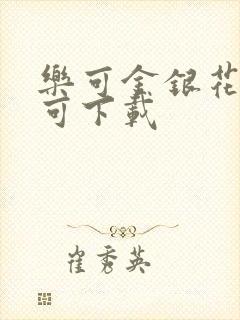 樂可金銀花
可下載
崔秀英